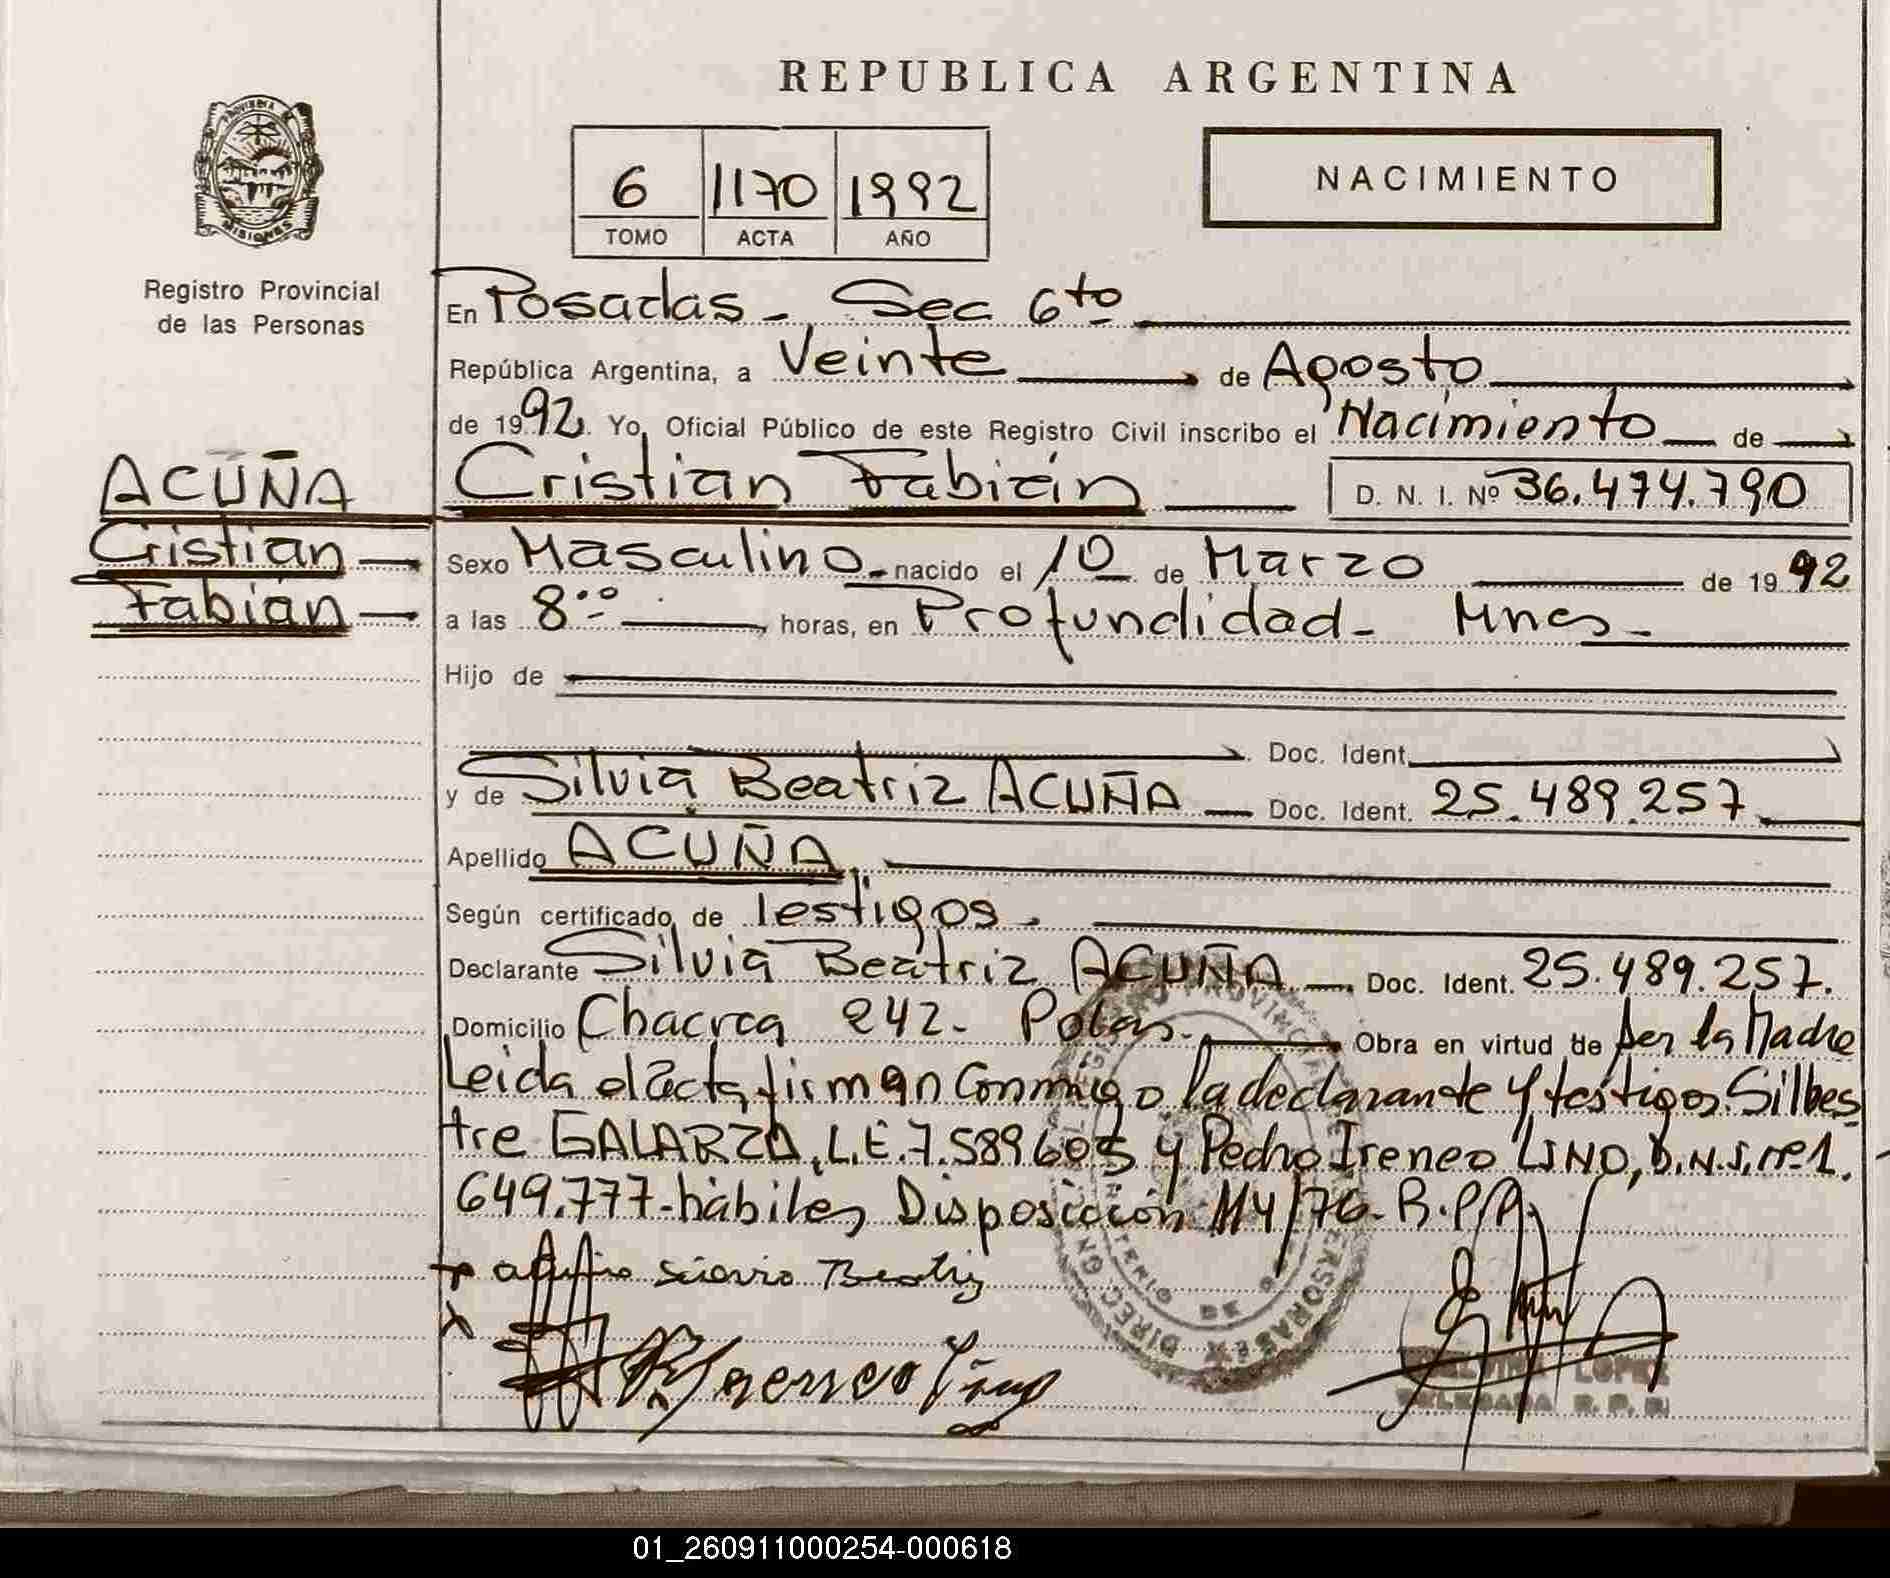 REPUBLICA ARGENTINA
PROVINCIA DE
MISIONES
Registro Provincial
de las Personas
6 1170 1992
TOMO ACTA AÑO
NACIMIENTO
En Posadas - Sec 6to
República Argentina, a Veinte de Agosto
de 1992. Yo, Oficial Público de este Registro Civil inscribo el Nacimiento de
ACUÑA
Cristian
Fabián
Cristian Fabián D. N. I. Nº 36.474.790
Sexo Masculino nacido el 10 de Marzo de 1992
a las 8:00 horas, en Profundidad - Mnes -
Hijo de
Doc. Ident.
y de Silvia Beatriz ACUÑA Doc. Ident. 25.489.257
Apellido ACUÑA
Según certificado de Testigos.
Declarante Silvia Beatriz ACUÑA Doc. Ident. 25.489.257.
Domicilio Chacra 242 - Pdas - Obra en virtud de ser la Madre
Leida el acta firman conmigo la declarante y testigos Silbes
tre GALARZA, L.E. 7.589.605 y Pedro Ireneo LINO, D.N.I. nº 1.
649.777 - hábiles Disposición 114/76 - R.P.P.
Silvia Beatriz
P. Ireneo Lino
LOPEZ
DELEGADA R. P. P.
01_260911000254-000618